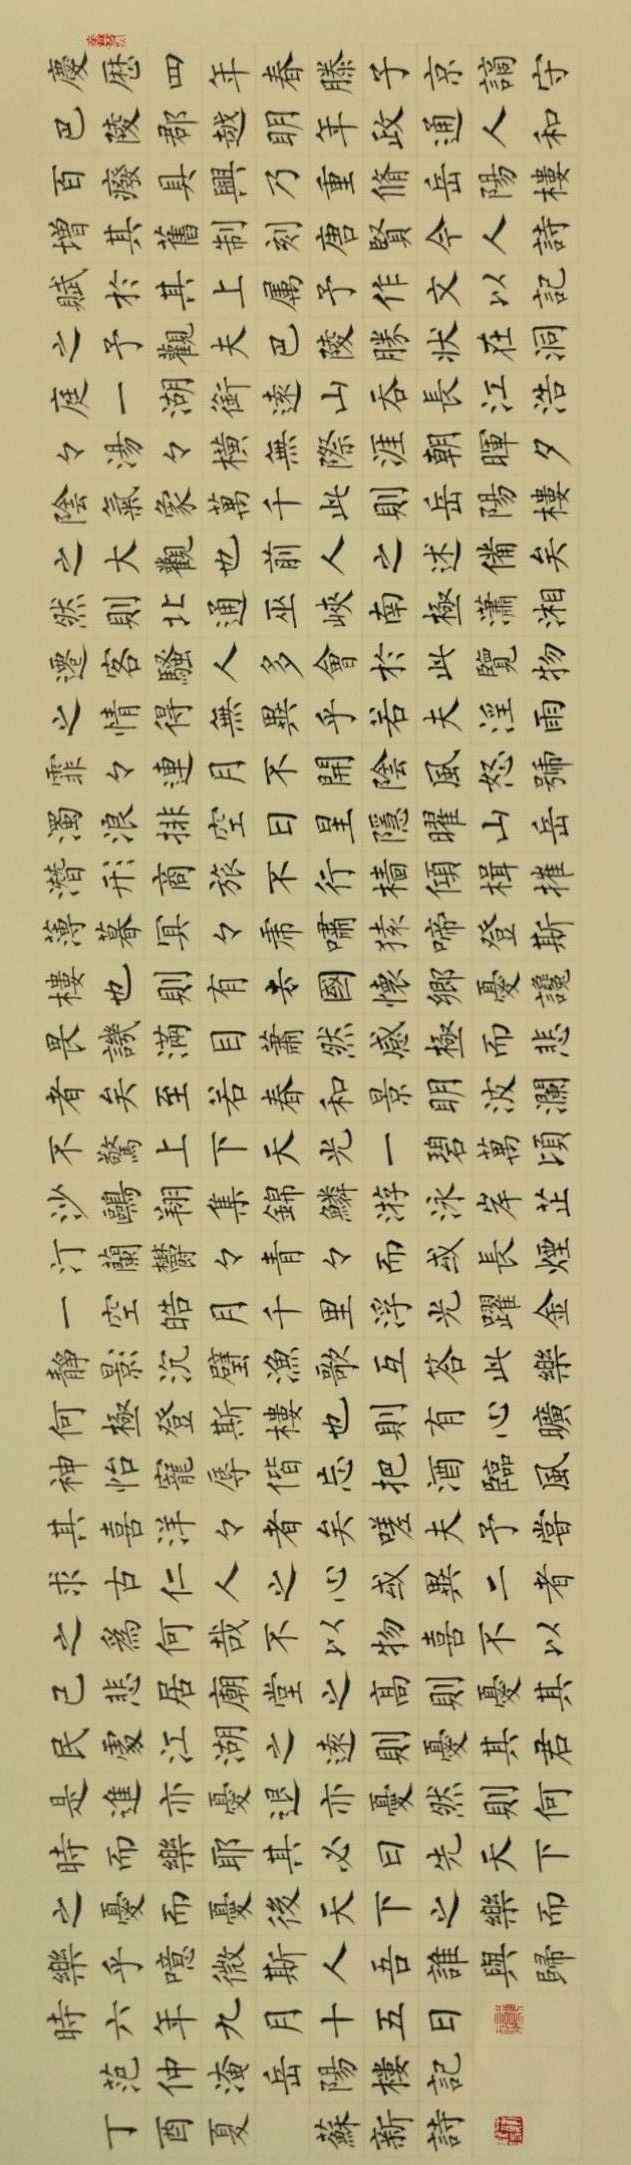 慶歷四年春滕子京謫守
巴陵郡越明年政通人和
百癈具興乃重脩岳陽樓
增其舊制刻唐賢今人詩
賦於其上属予作文以記
之予觀夫巴陵勝状在洞
庭一湖銜遠山吞長江浩
々湯々橫無際涯朝暉夕
陰氣象萬千此則岳陽樓
之大觀也前人之述備矣
然則北通巫峽南極瀟湘
遷客騷人多會於此覽物
之情得無異乎若夫淫雨
霏々連月不開陰風怒號
濁浪排空日星隱曜山岳
潛形商旅不行檣傾楫摧
薄暮冥々虎嘯猿啼登斯
樓也則有去國懷鄉憂讒
畏譏滿目蕭然感極而悲
者矣至若春和景明波瀾
不驚上下天光一碧萬頃
沙鷗翔集錦鱗游泳岸芷
汀蘭鬱々青々而或長煙
一空皓月千里浮光躍金
靜影沉璧漁歌互答此樂
何極登斯樓也則有心曠
神怡寵辱偕忘把酒臨風
其喜洋々者矣嗟夫予嘗
求古仁人之心或異二者
之爲何哉不以物喜不以
己悲居廟堂之高則憂其
民處江湖之遠則憂其君
是進亦憂退亦憂然則何
時而樂耶其必曰先天下
之憂而憂後天下之樂而
樂乎噫微斯人吾誰與歸
時六年九月十五日
范仲淹岳陽樓記
丁酉夏 蘇新詩